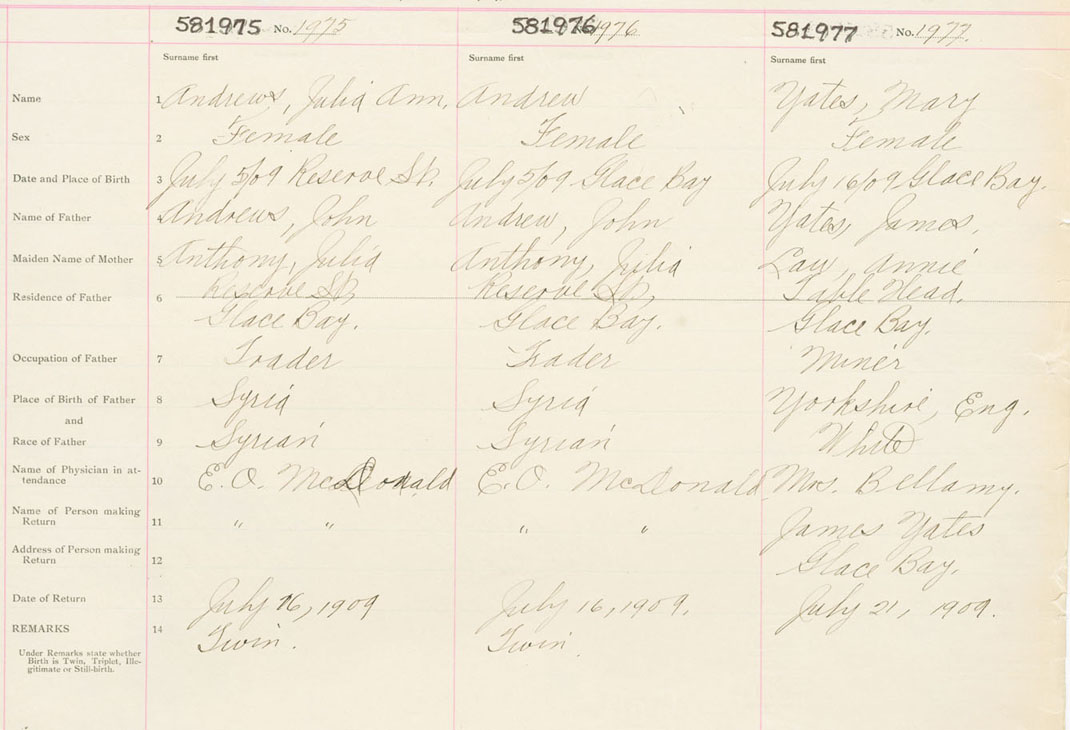 581975 No. 1975 581976 1976 581977 No. 1977.
Surname first Surname first Surname first
Name 1 Andrews, Julia Ann, Andrew Yates, Mary
Sex 2 Female Female Female
Date and Place of Birth 3 July 5/09 Reserve St. July 5/09 Glace Bay July 16/09 Glace Bay.
Name of Father 4 Andrews, John Andrew, John Yates, James.
Maiden Name of Mother 5 Anthony, Julia Anthony, Julia Annie
Reserve St, Reserve St, Table Head,
Residence of Father 6
Glace Bay. Glace Bay. Glace Bay.
Occupation of Father 7 Trader Trader Miner
Place of Birth of Father 8 Syria Syria Yorkshire, Eng.
and
Race of Father 9 Syrian Syrian White
Name of Physician in at-
tendance 10 E. O. McDonald E. O. McDonald Mrs. Bellamy.
Name of Person making
Return 11 " " " " James Yates
Address of Person making
Return 12 Glace Bay.
Date of Return 13 July 16, 1909 July 16, 1909. July 21, 1909.
REMARKS 14 Twin. Twin.
Under Remarks state whether
Birth is Twin, Triplet, Ille-
gitimate or Still-birth.